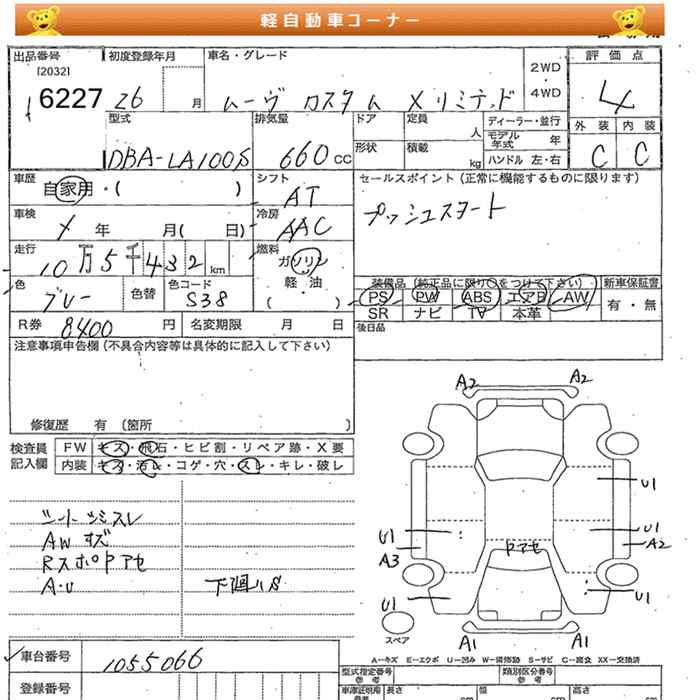 軽自動車コーナー
出品番号
[2032]
6227
初度登録年月
26 月
車名・グレード
ムーヴ カスタム Xリミテッド
2WD
・
4WD
評価点
4
外装 内装
C C
型式
DBA-LA100S
排気量
660 CC
ドア
定員
人
形状
積載
kg
ディーラー・並行
モデル年式 年
ハンドル 左・右
車歴
自家用・( )
シフト
AT
セールスポイント (正常に機能するものに限ります)
プッシュスタート
車検
年 月( 日)
冷房
AAC
走行
10万5千432km
燃料
ガソリン
軽・油
( )
色
グレー
色替
色コード
S38
装備品(純正品に限り○をつけて下さい)
PS PW ABS エアB AW
SR ナビ TV 本革
新車保証書
有・無
R券 8400 円
名変期限 月 日
後日品
注意事項申告欄 (不具合内容等は具体的に記入して下さい)
修復歴 有 (箇所 )
検査員
記入欄
FW キズ・飛石・ヒビ割・リペア跡・X要
内装 キズ・汚レ・コゲ・穴・スレ・キレ・破レ
シートシミスレ
AWキズ
RスポPアセ
A・U
下廻りS
A2 A2
U1
U1 U1
A3 A2
Pアセ
U1 U1
A1 A1
スペア
A－キズ E－エクボ U－凹み W－補修跡 S－サビ C－腐食 XX－交換済
車台番号
1055066
登録番号
型式指定番号
参考
類別区分番号
参考
車庫証明用
長さ cm
幅 cm
高さ cm